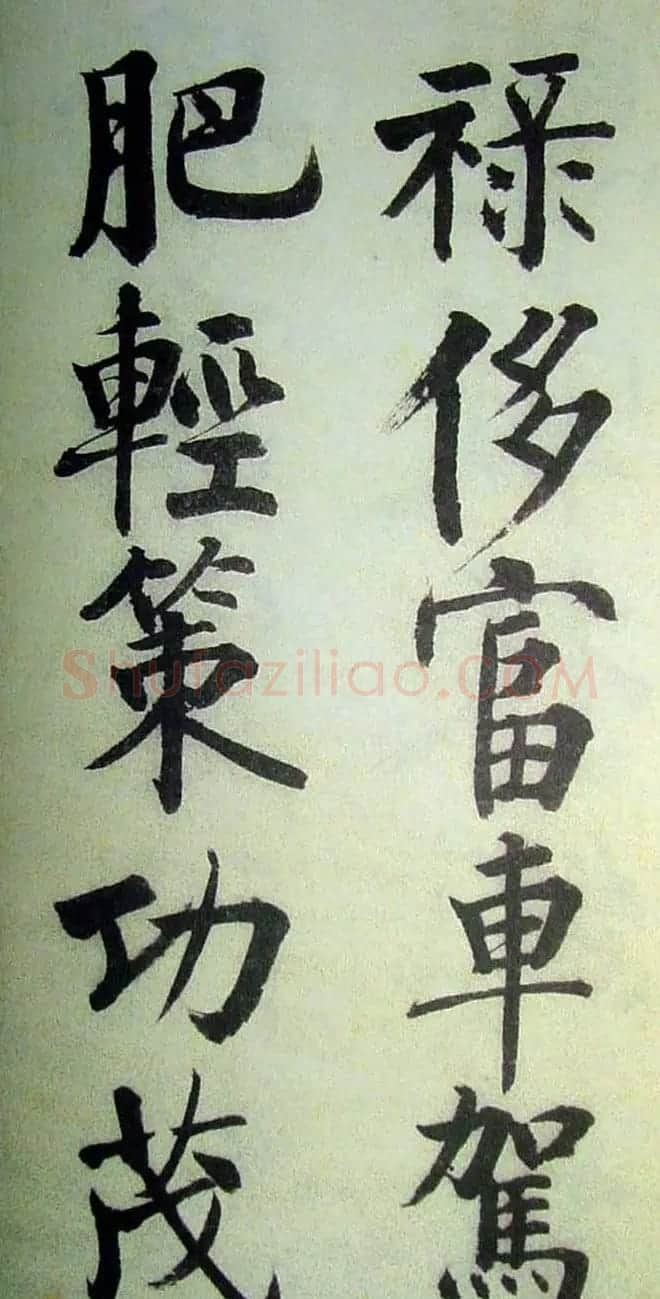 祿侈富車駕
肥輕策功茂
Shufaziliao.COM